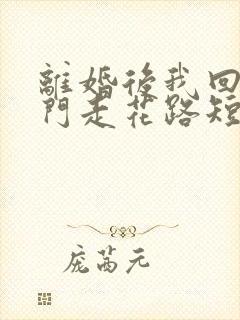 離婚後我回
門走花路短
庞茜元